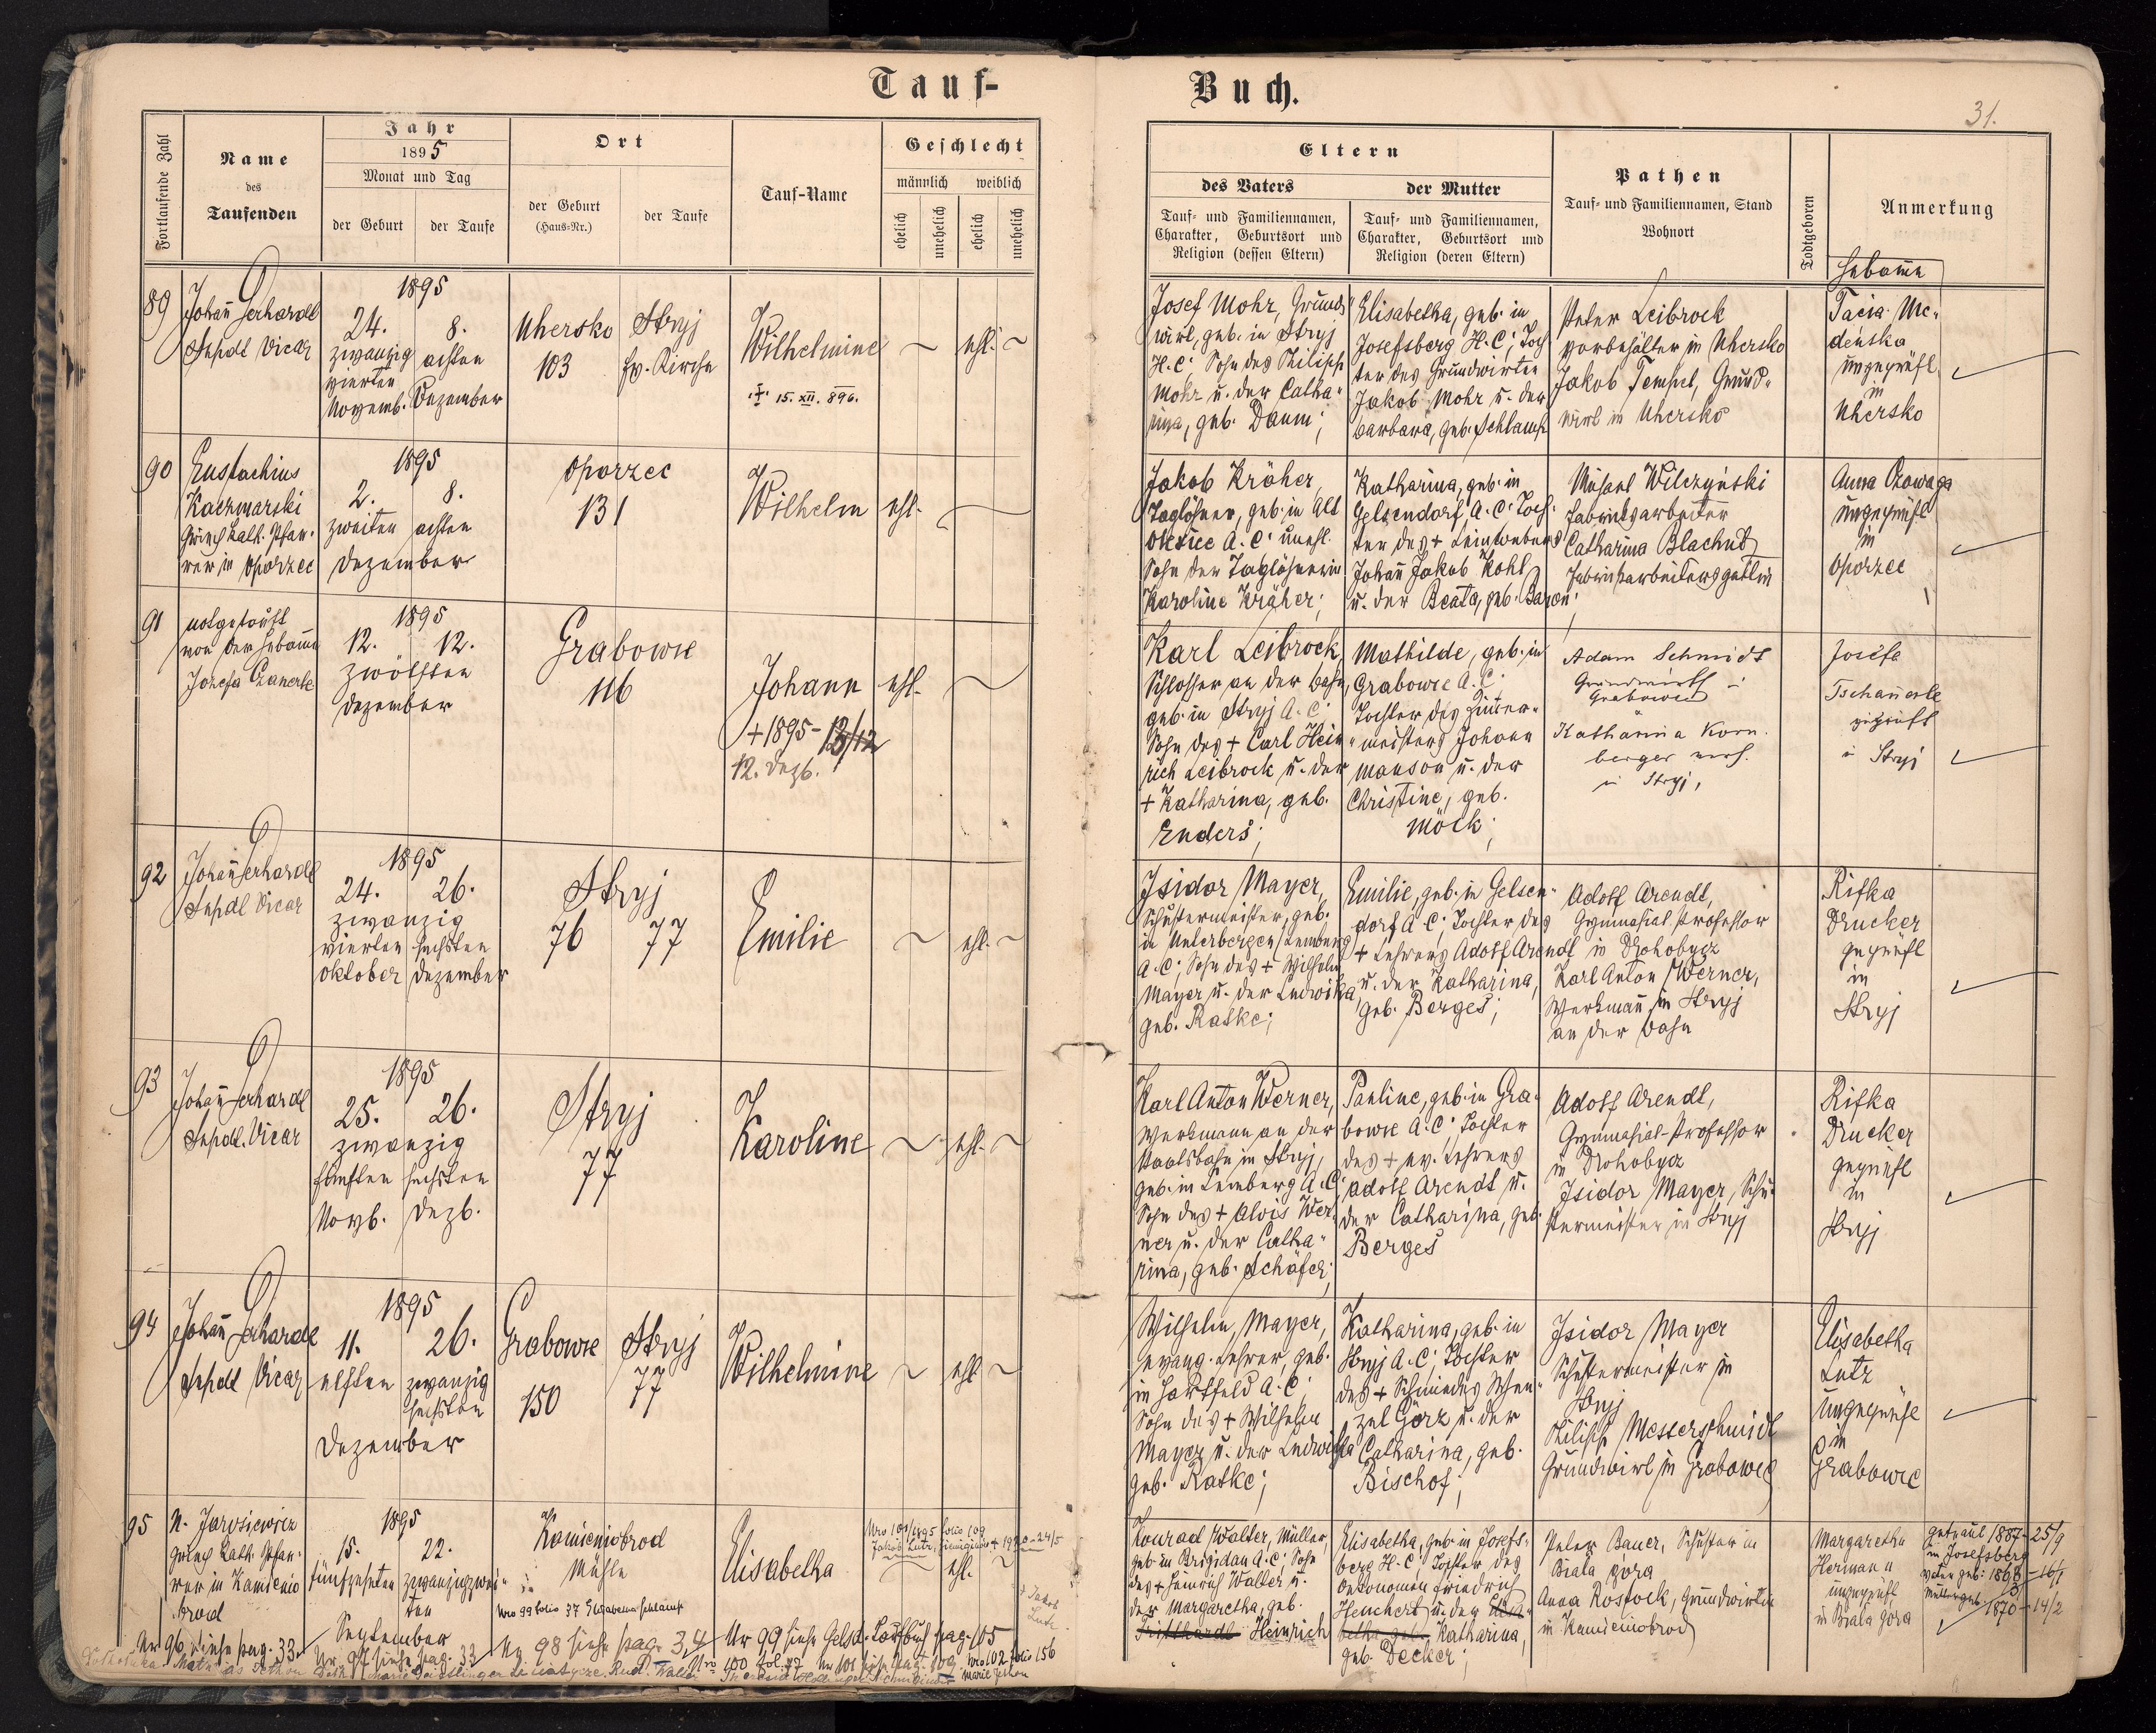 Tauf-
Buch.
31.
Fortlaufende Zahl
Name
des
Taufenden
Jahr
1895
Monat und Tag
der Geburt
der Taufe
Ort
der Geburt
(Haus-Nr.)
der Taufe
Tauf-Name
Geschlecht
männlich
weiblich
ehelich
unehelich
ehelich
unehelich
Eltern
des Vaters
Tauf- und Familiennamen,
Charakter, Geburtsort und
Religion (dessen Eltern)
der Mutter
Tauf- und Familiennamen,
Charakter, Geburtsort und
Religion (deren Eltern)
Pathen
Tauf- und Familiennamen, Stand
Wohnort
Todtgeboren
Anmerkung
Hebamme
89
Johann Gerhardt
Supdt Vicar
1895
24. 8.
zwanzig achten
vierten
Novemb. Dezember
Uhersko
103
Stryj
Ev. Kirche
Wilhelmine
15. XII. 896.
ehl.
Josef Mohr, Grund-
wirt, geb. in Stryj
H.C; Sohn des Philipp
Mohr u. der Catha-
rina, geb. Daum;
Elisabetha, geb. in
Josefsberg H.C; Toch
ter des Grundwirten
Jakob Mohr u. der
Barbara, geb. Schlamp
Peter Leibrock
Vorbehälter in Uhersko
Jakob Tempel, Grund-
wirt in Uhersko
ungeprüft
in
Uhersko
90
Eustachius
Kaczmarski
Griech kath. Pfar-
rer in Oporzec
1895
2. 8.
zweiten achten
Dezember
Oporzec
131
Wilhelm
ehl.
Jakob Kräher,
Taglöhner, geb. in Alt
Oleksice A.C. unehl.
Sohn der Taglöhnerin
Karoline Kräher;
Katharina, geb. in
Gelsendorf, A.C. Toch-
ter des + Leinwebers
Johann Jakob Kohl
u. der Beata, geb. Baron;
Michael Wilczyński
Fabriksarbeiter
Catharina Blachut
Fabriksarbeitersgattin
Anna Ozowaga
ungeprüft
in
Oporzec
91
notgetauft
von der Hebamme
Josefa Czanerle
1895
12. 12.
zwölften
Dezember
Grabowce
116
Johann
+ 1895 - 13/12
12. Dezb.
ehl.
Karl Leibrock,
Schlosser an der Bahn,
geb. in Stryj A.C.
Sohn des + Carl Hein-
rich Leibrock u. der
+ Katharina, geb.
Enders;
Mathilde, geb. in
Grabowce A.C.
Tochter des Zimmer-
meisters Johann
Manson u. der
Christine, geb.
Möck;
Adam Schmidt
Grundwirth in
Grabowce
Katharina Korn-
berger verh.
in Stryj,
Josefe
Tschanerle
geprüft
in Stryj
92
Johann Gerhardt
Supdt Vicar
1895
24. 26.
zwanzig
vierten sechsten
Oktober Dezember
Stryj
76 77
Emilie
ehl.
Isidor Mayer,
Schustermeister, geb.
in Unterbergen/Lemberg
A.C; Sohn des + Wilhelm
Mayer u. der Ludwika
geb. Ratke;
Emilie, geb. in Gelsen-
dorf A.C; Tochter des
+ Lehrers Adolf Arendt
u. der Katharina,
geb. Berges;
Adolf Arendt,
Gymnasial Professor
in Drohobycz
Karl Anton Werner,
Werkmann in Stryj
an der Bahn
Rifka
Drucker
geprüft
in
Stryj
93
Johann Gerhardt
Supdt. Vicar
1895
25. 26.
zwanzig
fünften sechsten
Novb. Dezb.
Stryj
77
Karoline
ehl.
Karl Anton Werner,
Werkmann an der
Staatsbahn in Stryj,
geb. in Lemberg A.C;
Sohn des + Alois Wer-
ner u. der Catha-
rina, geb. Schäfer;
Pauline, geb. in Gra-
bowce A.C; Tochter
des + ev. Lehrers
Adolf Arendt u.
der Catharina, geb.
Berges
Adolf Arendt,
Gymnasial-Professor
in Drohobycz
Isidor Mayer, Schu-
stermeister in Stryj
Rifka
Drucker
geprüft
in
Stryj
94
Johann Gerhardt
Supdt Vicar
1895
11. 26.
elften zwanzig
sechsten
Dezember
Grabowce
150
Stryj
77
Wilhelmine
ehl.
Wilhelm Mayer,
evang. Lehrer, geb.
in Hartfeld A.C;
Sohn des + Wilhelm
Mayer u. der Ludwika
geb. Ratke;
Katharina, geb. in
Stryj A.C; Tochter
des + Schmiedes Wen-
zel Görz u. der
Catharina, geb.
Bischof;
Isidor Mayer
Schustermeister in
Stryj
Philipp Messerschmidt
Grundwirt in Grabowce
Elisabetha
Lutz
ungeprüft
in
Grabowce
95
N. Jarosiewicz
griech kath. Pfar-
rer in Kamienio
brod
1895
15. 22.
fünfzehnten zwanzigzwei-
ten
September
Kamieniobrod
Mühle
Nro 99 folio 37 Elisabetha Schlamp
Elisabetha
Nro 101/1895 folio 109
Jakob Lutz,
ehl.
+ Jakob
Lutz
Konrad Walter, Müller,
geb. in Brigidau A.C; Sohn
des + Heinrich Walter u.
der Margaretha, geb.
Heinrich
Elisabetha, geb. in Josefs-
berg H.C, Tochter des
Oekonomen Friedrich
Henchert u. der
Katharina,
geb. Decker;
Peter Bauer, Schuster in
Biała góra
Anna Rostock, Grundwirtin
in Kamieniobrod
Margaretha
Hermann
ungeprüft
in Biała góra
getraut 1887 - 25/9
in Josefsberg
Vater geb: 1863 - 16/1
Mutter geb
1870 - 14/2
Nr. 96 siehe pag. 33.
Nr. 97 siehe pag. 33
Nr. 98 siehe pag. 34
Nr 99 siehe Gelsd. Taufbuch pag. 105
Nro 100 fol. 37 Nr 101 siehe pag. 109 Nro 102 folio 156